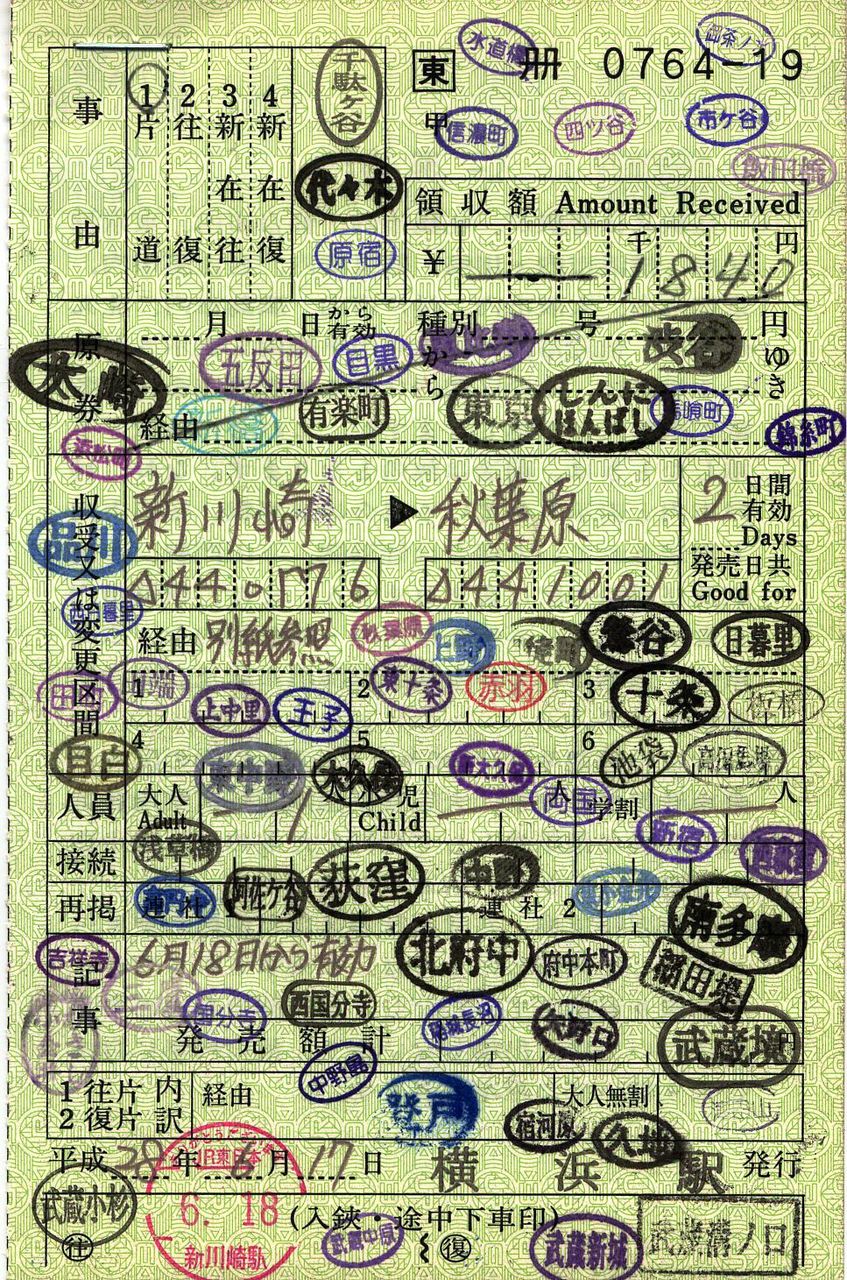 水道橋
御茶ノ水
東 冊 0764-19
甲
信濃町
四ツ谷
市ケ谷
飯田橋
千駄ケ谷
代々木
原宿
事由
1 片道
2 往復
3 新在往
4 新在復
領収額 Amount Received
¥ 千 1840 円
原券
月 日から有効 種別 号 円
から ゆき
五反田
目黒
渋谷
大崎
経由
有楽町
東京
しんにほんばし
馬喰町
錦糸町
浜松町
収受又は変更区間
新川崎 ▶ 秋葉原
2 日間有効
Days
発売日共
Good for
品川
西日暮里
経由 別紙参照
秋葉原
上野
鶯谷
日暮里
田町
1 2 3
上中里
王子
東十条
赤羽
十条
板橋
4 5 6
目白
東中野
大久保
新大久保
池袋
高田馬場
人員 大人 Adult 1 小児 Child 人 学割 人
両国
新宿
浅草橋
接続
阿佐ケ谷
荻窪
中野
再掲 連社1 連社2
南多摩
吉祥寺
記事
6月18日から有効
北府中
府中本町
稲田堤
国分寺
西国分寺
稲城長沼
矢野口
武蔵境
発売額計 円
中野島
登戸
1 往片
2 復片
内訳
経由
大人無割
宿河原
久地
平成 28 年 6 月 17 日 横浜駅 発行
JR東日本
6. 18
新川崎駅
武蔵小杉
(入鋏・途中下車印)
往
復
武蔵中原
武蔵新城
武蔵溝ノ口